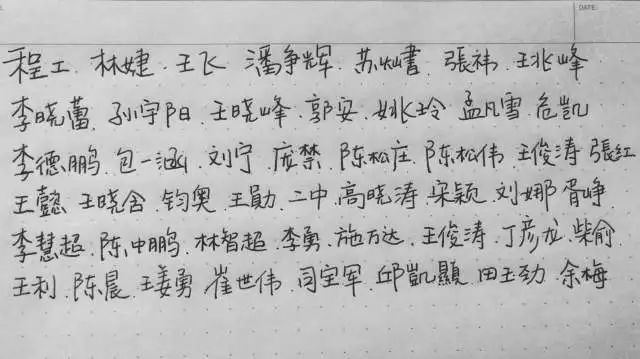 DATE:
程工 林婕 王飞 潘争辉 苏灿書 張祎 王兆峰
李晓蕾 孙宇阳 王晓峰 郭安 姚玲 孟凡雪 危凯
李德鹏 包一涵 刘宁 庞禁 陈松庄 陈松伟 王俊涛 張红
王懿 王晓舍 钧奥 王勛 二中 高晓涛 宋颖 刘娜 胥峥
李慧超 陈中鹏 林智超 李勇 施万达 王俊涛 丁彦龙 柴俞
王利 陈晨 王姜勇 崔世伟 闫宝军 邱凱顯 田王劲 余梅